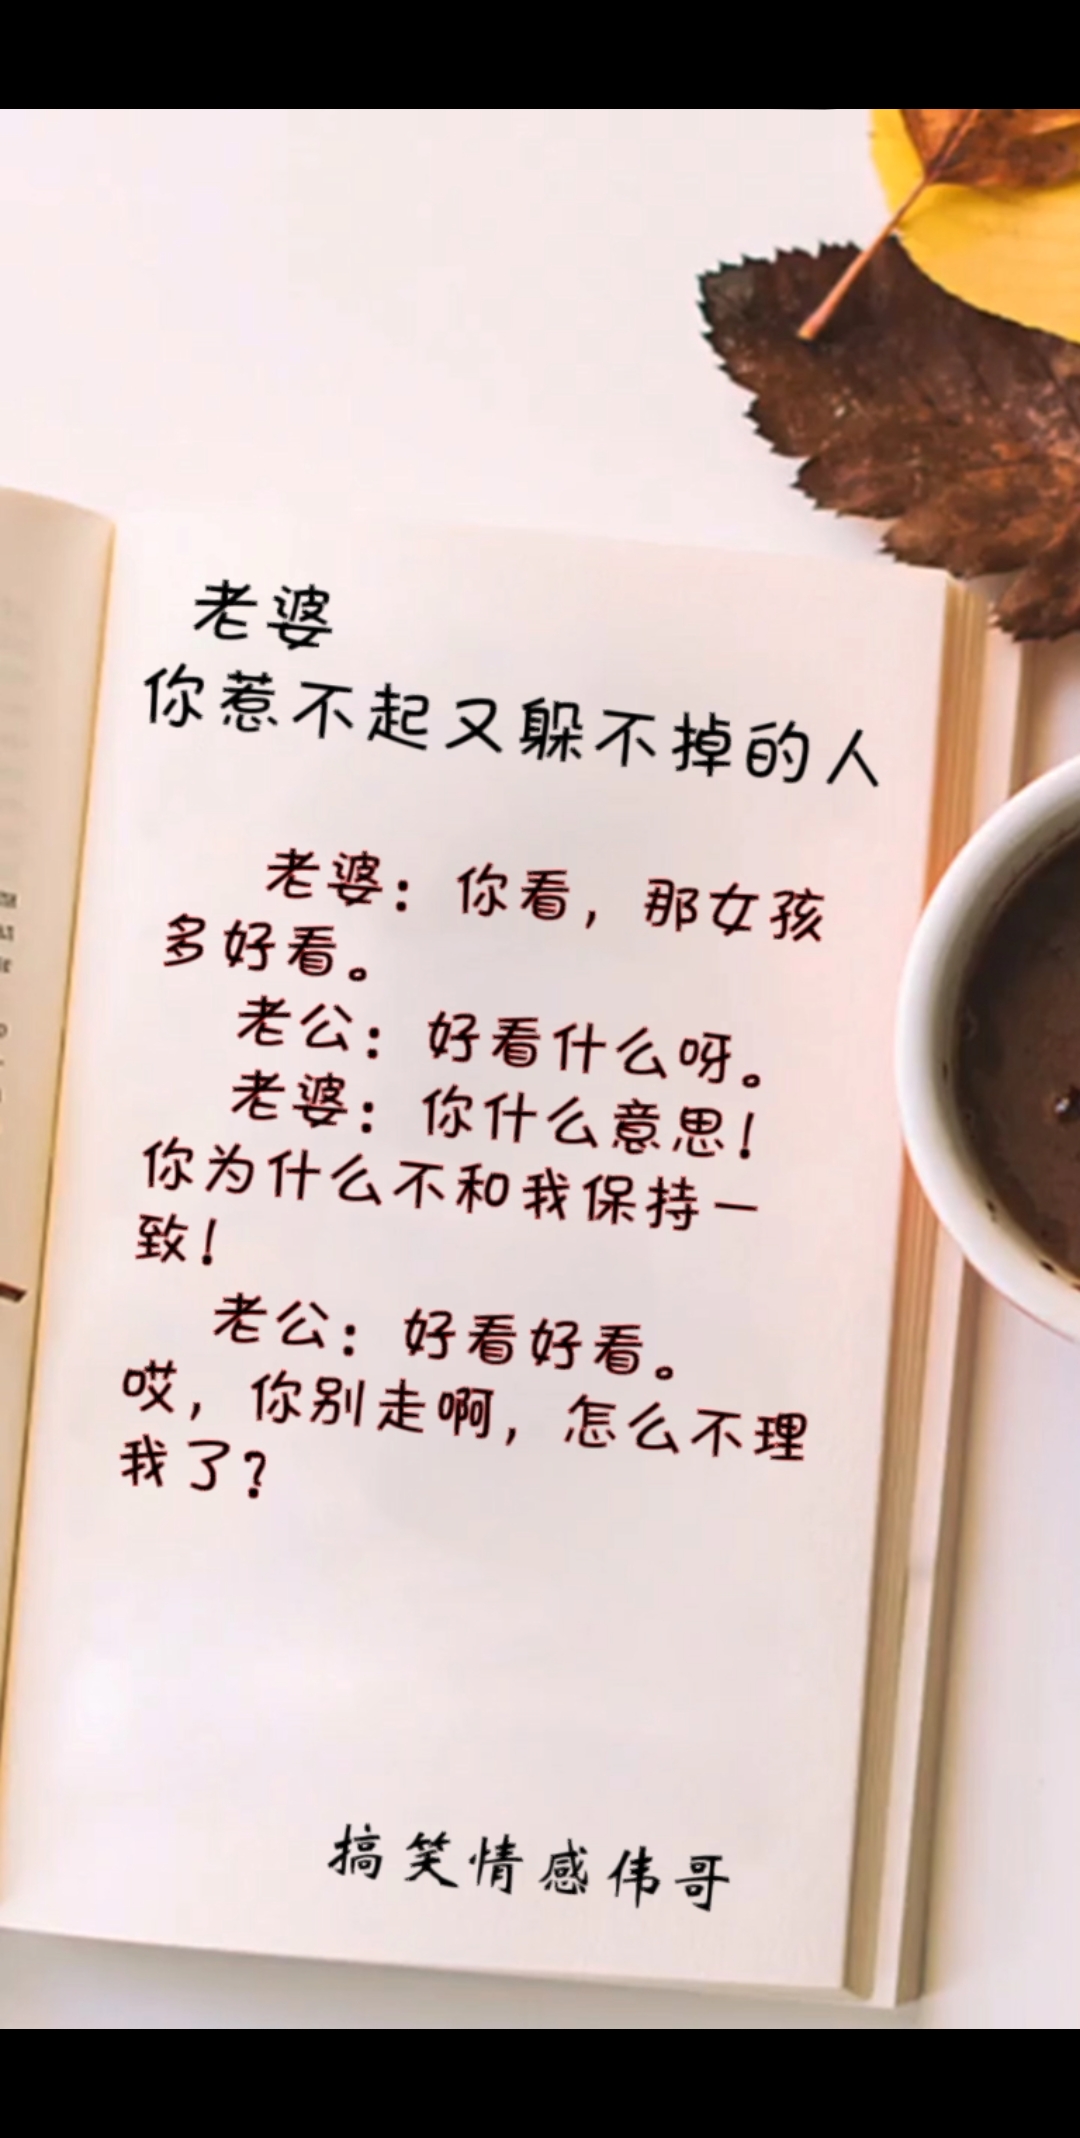 老婆
你惹不起又躲不掉的人
老婆：你看，那女孩
多好看。
老公：好看什么呀。
老婆：你什么意思！
你为什么不和我保持一
致！
老公：好看好看。
哎，你别走啊，怎么不理
我了？
搞笑情感伟哥